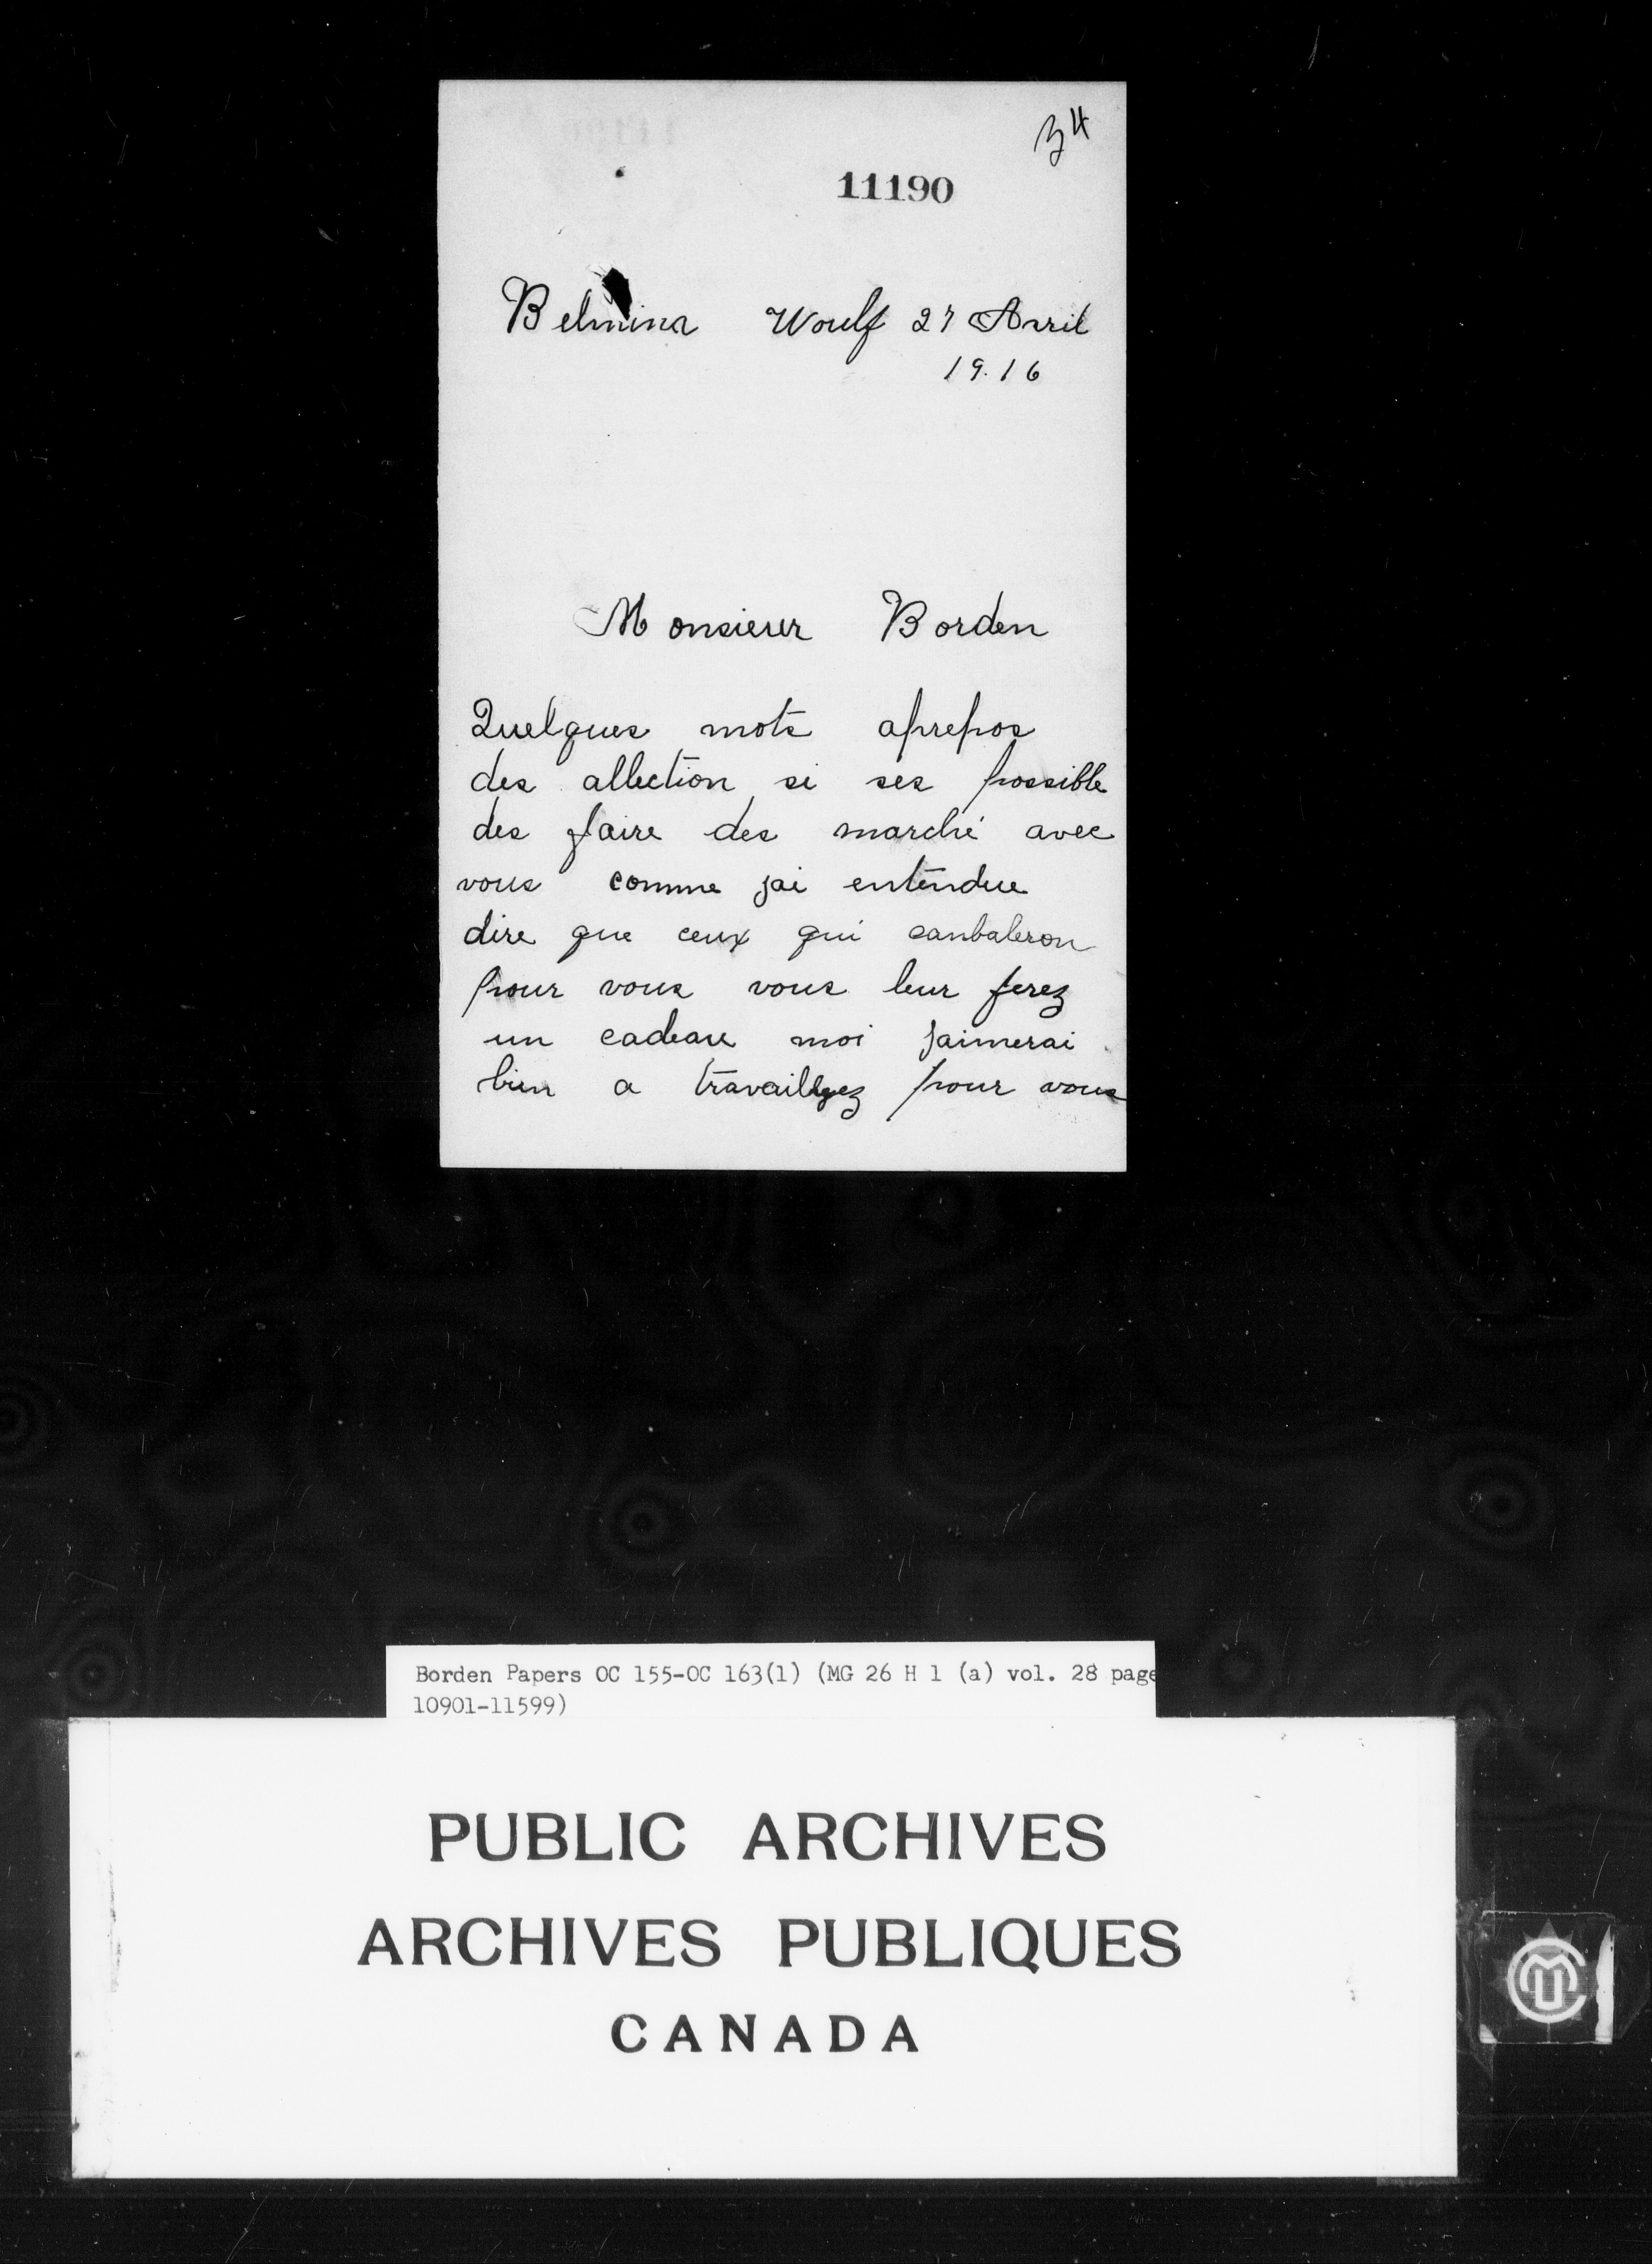 34
11190
Belmina Woulf 27 Avril
19.16
Monsieur Borden
Quelques mots aprepos
des allection si ses possible
des faire des marché avec
vous comme jai entendue
dire que ceux qui canbaleron
pour vous vous leur ferez
un cadeau moi jaimerai
bien a travaillyez pour vous
Borden Papers OC 155-OC 163(1) (MG 26 H 1 (a) vol. 28 page
10901-11599)
PUBLIC ARCHIVES
ARCHIVES PUBLIQUES
CANADA